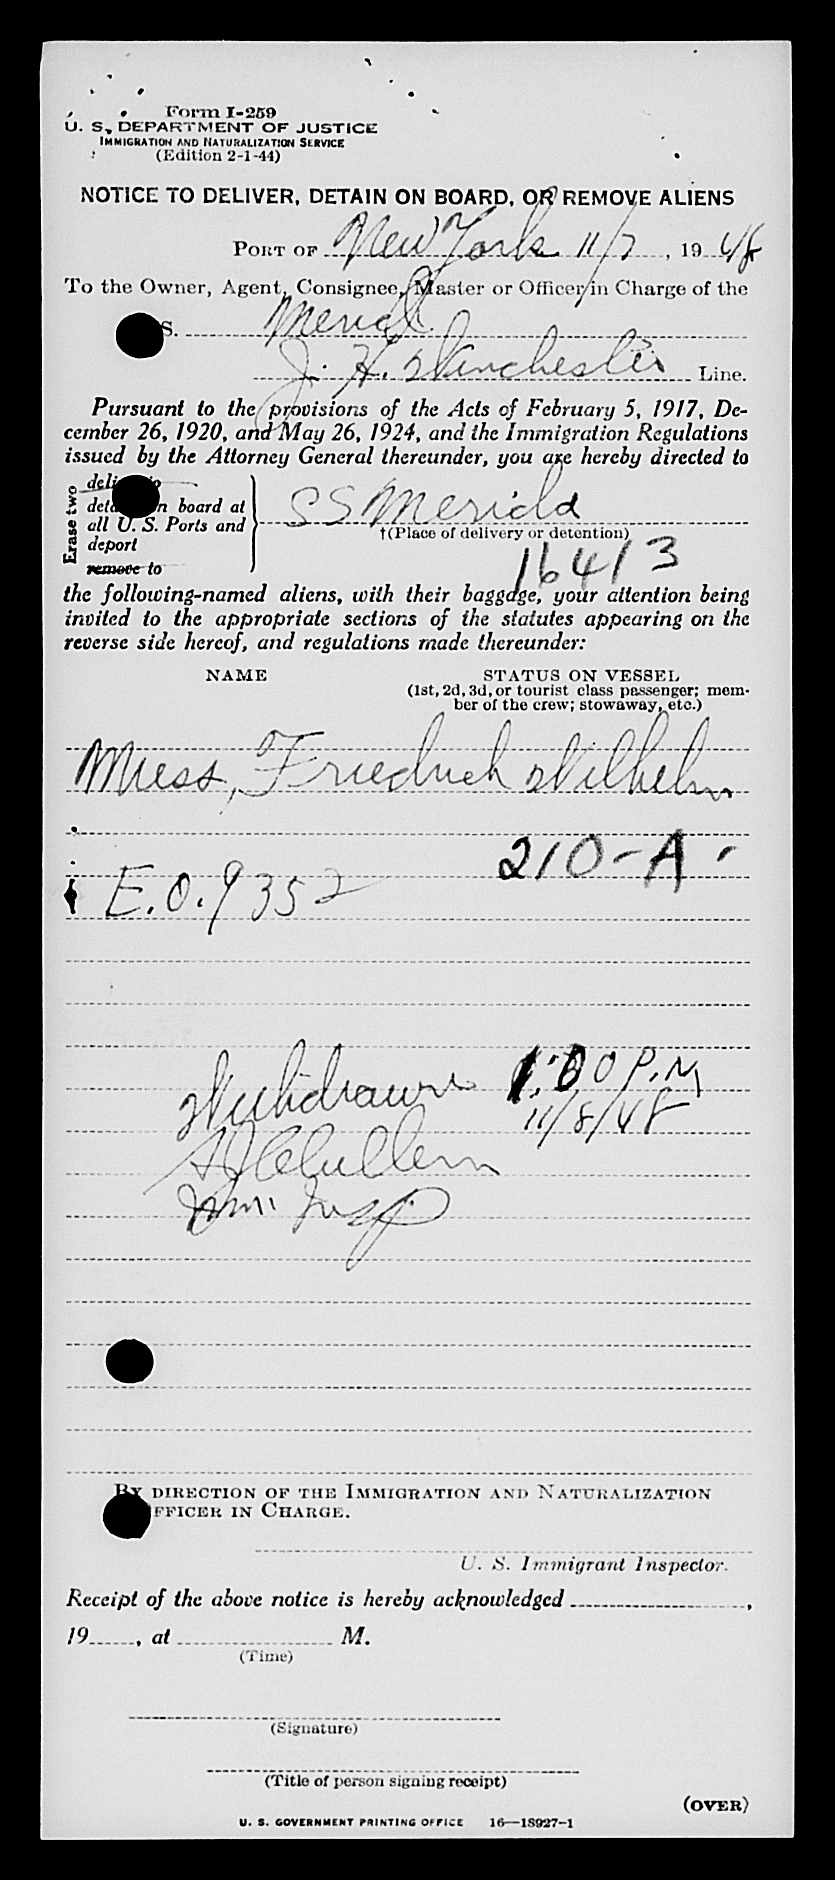 Form I-259
U. S. DEPARTMENT OF JUSTICE
IMMIGRATION AND NATURALIZATION SERVICE
(Edition 2-1-44)
NOTICE TO DELIVER, DETAIN ON BOARD, OR REMOVE ALIENS
PORT OF New York 11/7, 1948
To the Owner, Agent, Consignee, Master or Officer in Charge of the
S. Merida
J. H. Winchester Line.
Pursuant to the provisions of the Acts of February 5, 1917, De-
cember 26, 1920, and May 26, 1924, and the Immigration Regulations
issued by the Attorney General thereunder, you are hereby directed to
Erase two
deliver to
detain on board at
all U. S. Ports and
deport
remove to
SS Merida
†(Place of delivery or detention)
16413
the following-named aliens, with their baggage, your attention being
invited to the appropriate sections of the statutes appearing on the
reverse side hereof, and regulations made thereunder:
NAME STATUS ON VESSEL
(1st, 2d, 3d, or tourist class passenger; mem-
ber of the crew; stowaway, etc.)
Muess, Friedrich Wilhelm
210-A
E.O. 9352
Withdrawn 1:00 P.M
11/8/48
Imm. Insp
BY DIRECTION OF THE IMMIGRATION AND NATURALIZATION
OFFICER IN CHARGE.
U. S. Immigrant Inspector.
Receipt of the above notice is hereby acknowledged ,
19 , at M.
(Time)
(Signature)
(Title of person signing receipt)
(OVER)
U. S. GOVERNMENT PRINTING OFFICE 16—18927-1